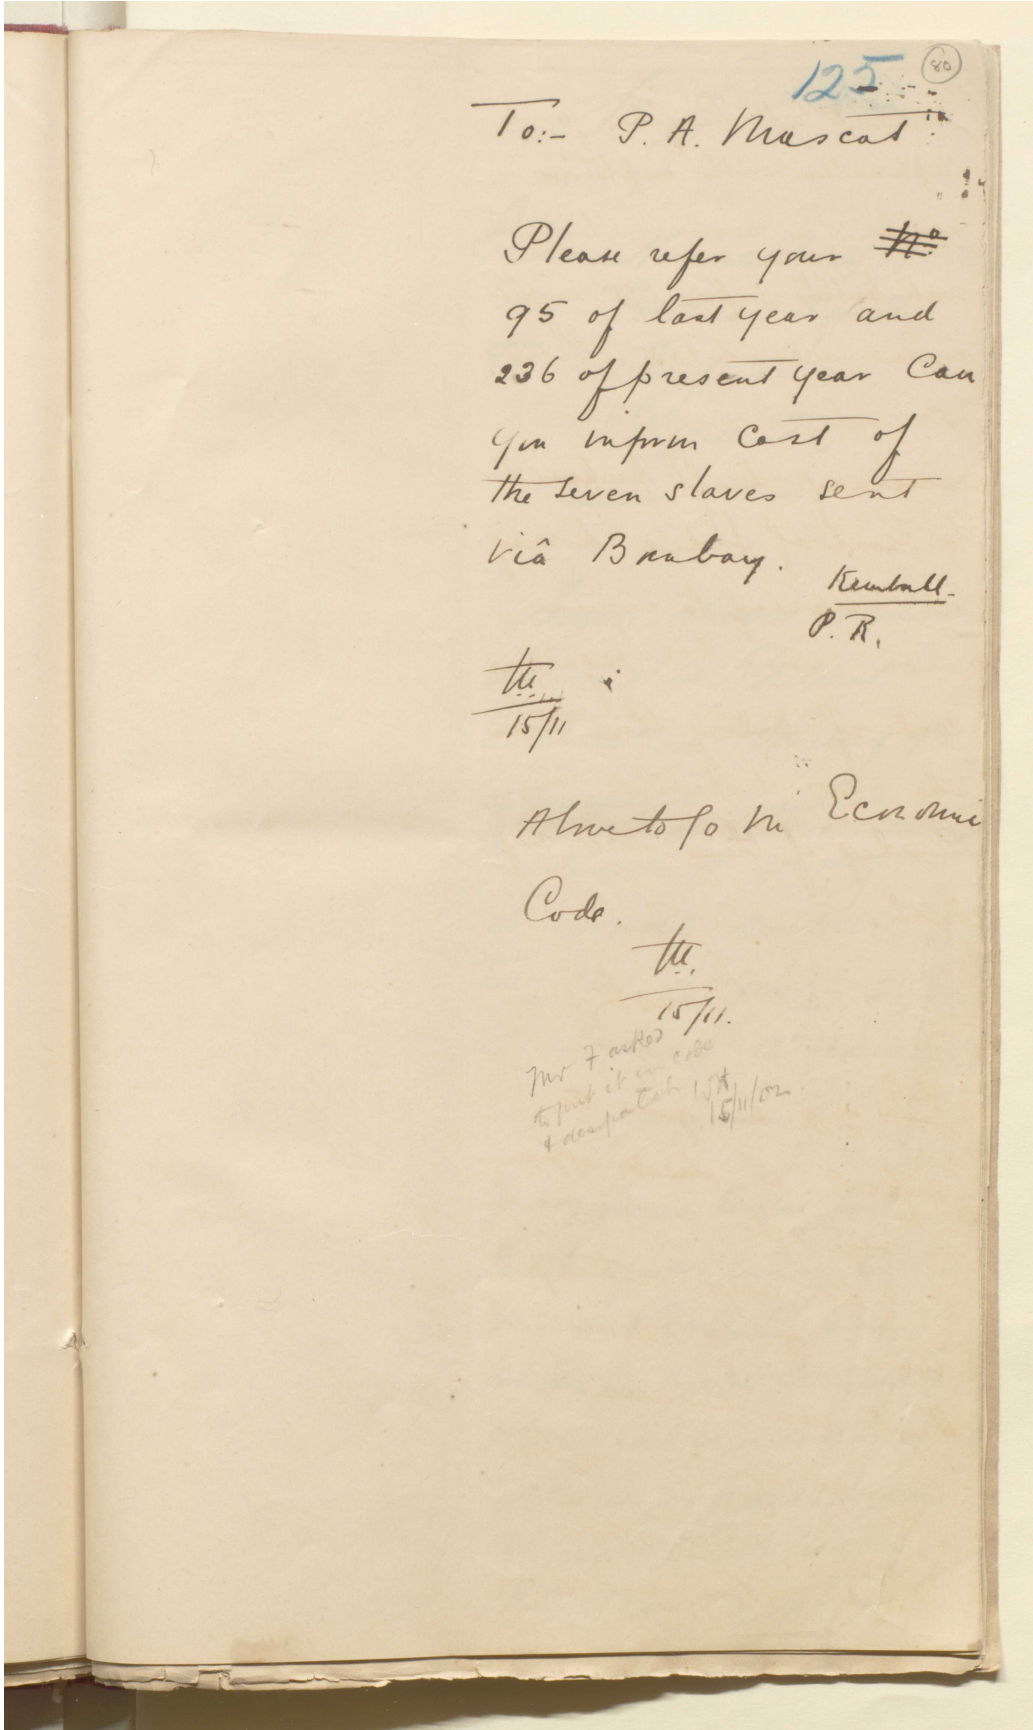 125
80
To:- P. A. Muscat
Please refer your No
95 of last year and
236 of present year Can
you inform cost of
the seven slaves sent
viâ Bombay.
Kemball.
P. R.
15/11
Above to go in Economic
Code.
15/11.
Mr F asked
to put it in code
& despatch
15/11/02